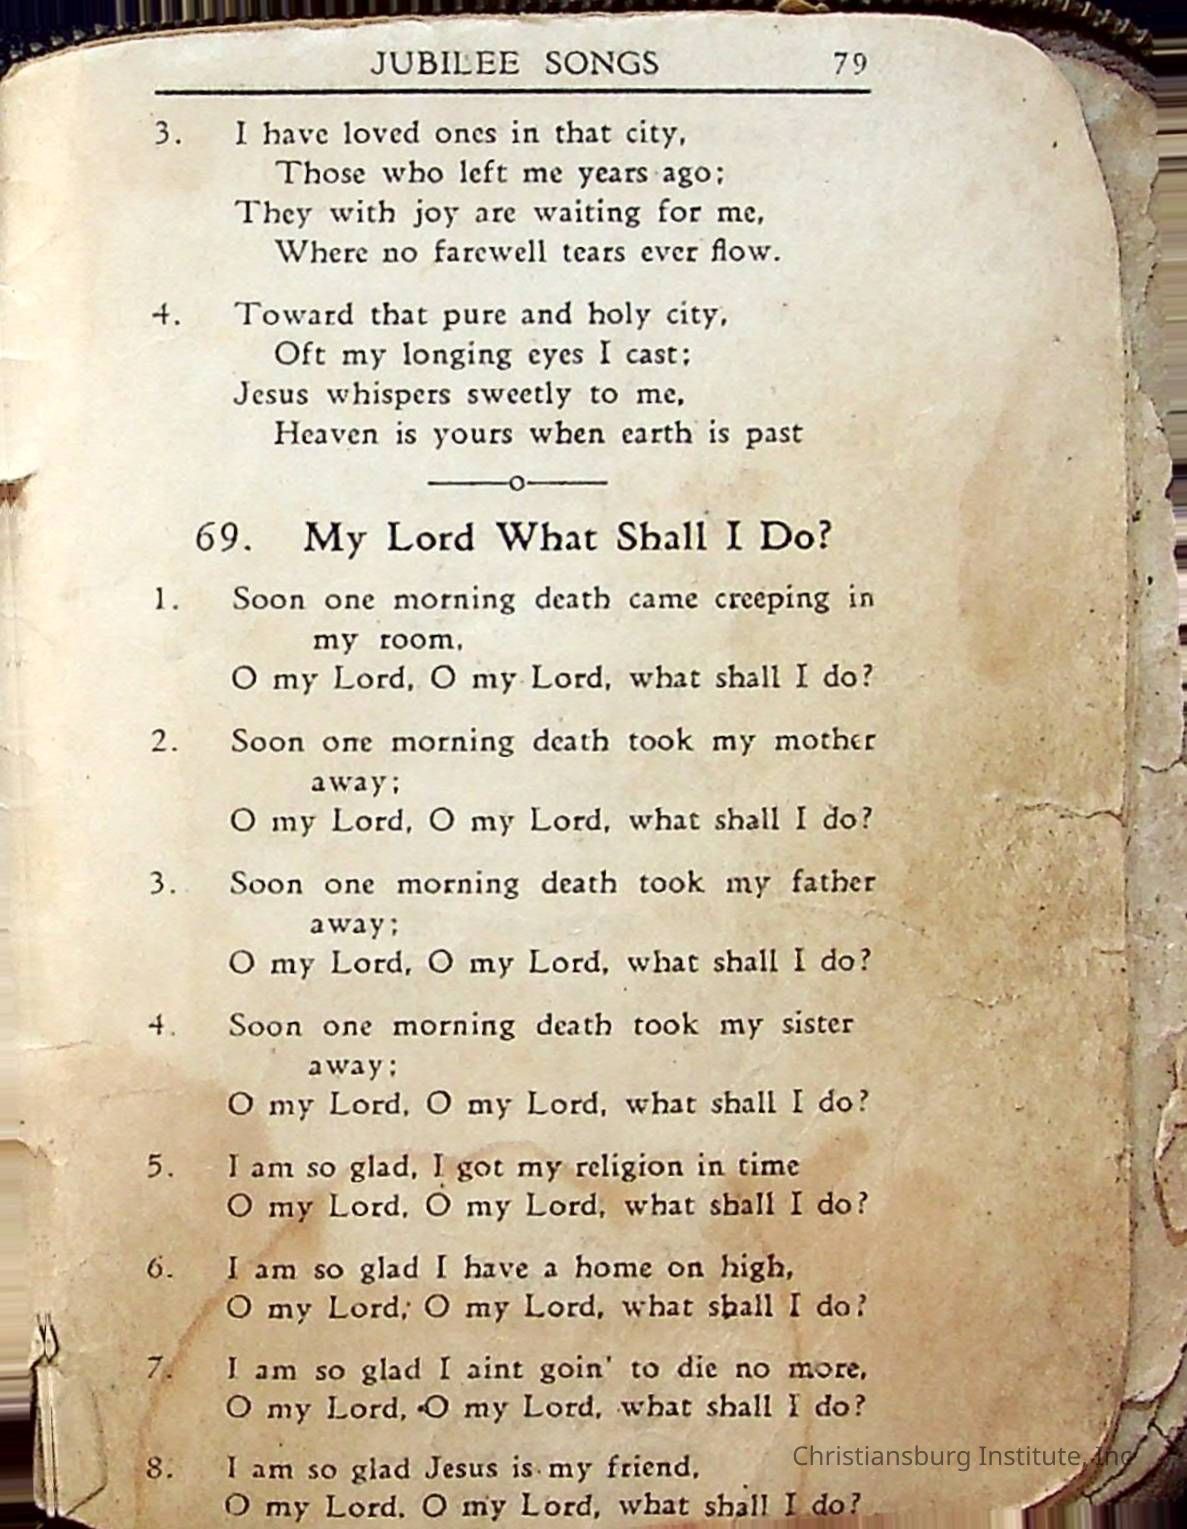 JUBILEE SONGS 79
3. I have loved ones in that city,
Those who left me years ago;
They with joy are waiting for me,
Where no farewell tears ever flow.
4. Toward that pure and holy city,
Oft my longing eyes I cast;
Jesus whispers sweetly to me,
Heaven is yours when earth is past
69. My Lord What Shall I Do?
1. Soon one morning death came creeping in
my room,
O my Lord, O my Lord, what shall I do?
2. Soon one morning death took my mother
away;
O my Lord, O my Lord, what shall I do?
3. Soon one morning death took my father
away;
O my Lord, O my Lord, what shall I do?
4. Soon one morning death took my sister
away;
O my Lord, O my Lord, what shall I do?
5. I am so glad, I got my religion in time
O my Lord, O my Lord, what shall I do?
6. I am so glad I have a home on high,
O my Lord, O my Lord, what shall I do?
7. I am so glad I aint goin' to die no more,
O my Lord, O my Lord, what shall I do?
8. I am so glad Jesus is my friend,
O my Lord, O my Lord, what shall I do?
Christiansburg Institute, Inc